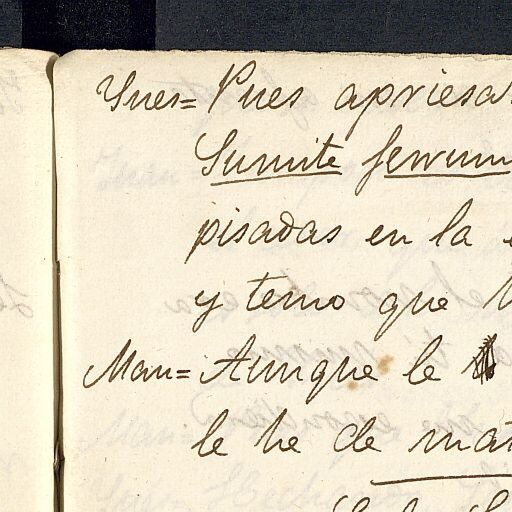 Ynes= Pues apriesa
Sumite ferrum
pisadas en la
y temo que
Man= Aunque le
le he de mat